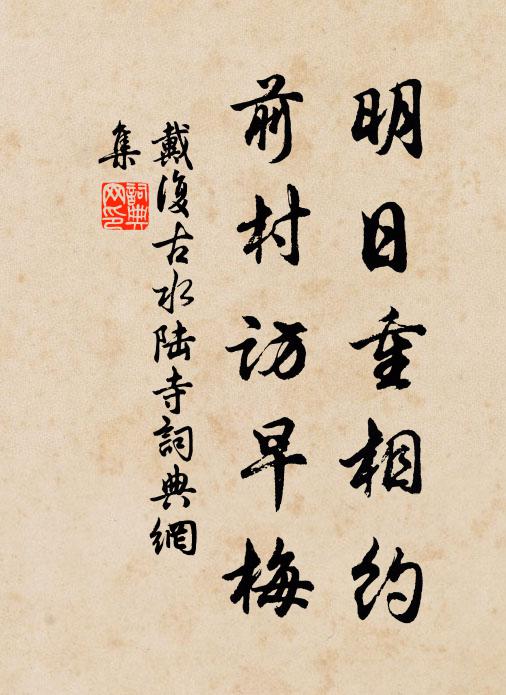 明日重相約
前村訪早梅
戴復古水陆寺詞典網
集
詞典网印